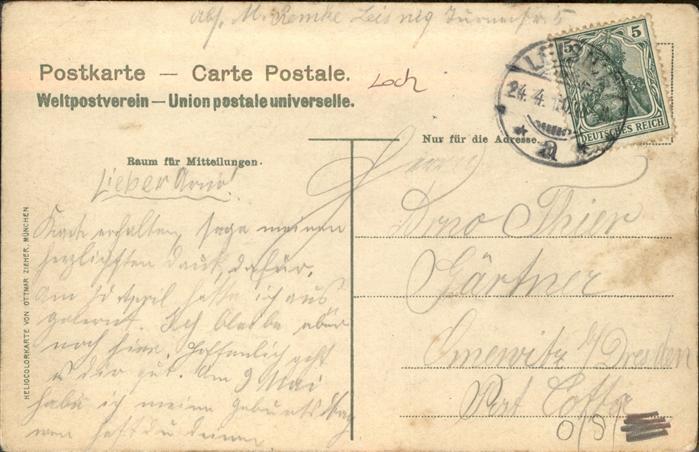 Abs. M. Remke Leisnig Turnerstr. 5
5 5
DEUTSCHES REICH
LEISNIG
24. 4. 10
* a *
Postkarte — Carte Postale.
Loch
Weltpostverein — Union postale universelle.
Nur für die Adresse.
Raum für Mitteilungen.
Lieber Arno!
Karte erhalten, sage meinen
herzlichsten Dank, dafür.
Am April hatte ich aus
gelernt. Ich bleibe aber
noch hier. Hoffentlich geht
es dir gut. Am 9 Mai
habe ich meine Geburtstag
wen hast du deinen
Herrn
Arno Thier
Gärtner
Omewitz b/Dresden
Post Cotta
HELIOCOLORKARTE VON OTTMAR ZIEHER, MÜNCHEN